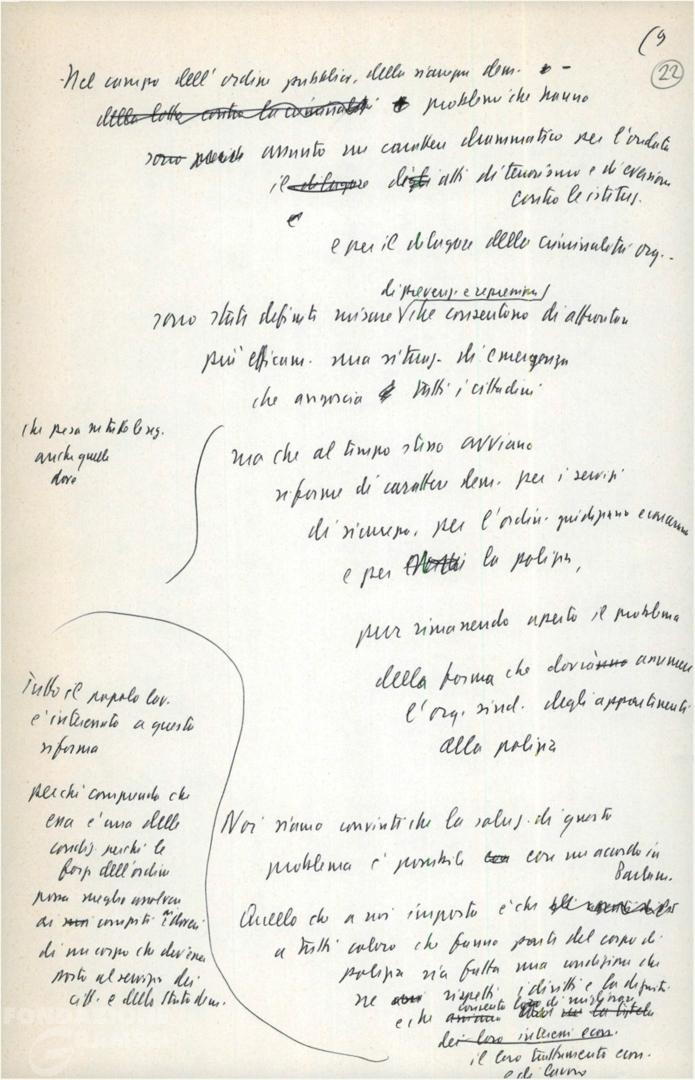 (9
22
Nel campo dell'ordine pubblico, della sicurezza dem. -
della lotta contro la criminalità problemi che hanno
assunto un carattere drammatico per l'ondata
il dilagare degli atti di terrorismo e di eversione
contro le istituz.
e
e per il dilagare della criminalità org.
di prevenz. e repressione
sono state definite misure che consentono di affrontare
più efficacem. una situaz. di emergenza
che angoscia tutti i cittadini
che pesa su tutto le org.
anche quelle
dove
ma che al tempo stesso avviano
riforme di carattere dem. per i servizi
di sicurezza, per l'ordin. giudiziario e carcerario
e per la polizia,
pur rimanendo aperto il problema
della forma che dovrà assumere
l'org. sind. degli appartenenti
alla polizia
Tutto il popolo lav.
è interessato a questa
riforma
perché comprende che
essa è una delle
condiz. perché le
forze dell'ordine
possa meglio assolvere
ai compiti i doveri
di un corpo che dev'essere
posto al servizio dei
citt. e dello Stato dem.
Noi siamo convinti che la soluz. di questo
problema è possibile con un accordo in
Parlam.
Quello che a noi importa è che
a tutti coloro che fanno parte del corpo di
polizia sia fatta una condizione che
ne rispetti i diritti e la dignità
e che consenta loro di migliorare
la tutela
dei loro interessi econ.
il loro trattamento econ.
e di lavoro